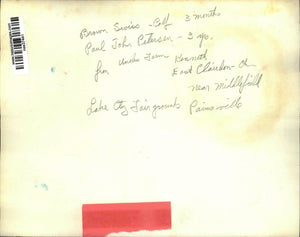 Brown Swiss - Calf 3 months
Paul John Petersen - 3 yrs.
from Uncle Kenneth
East Claridon O
near Middlefield
Lake Cty Fairgrounds Painesville